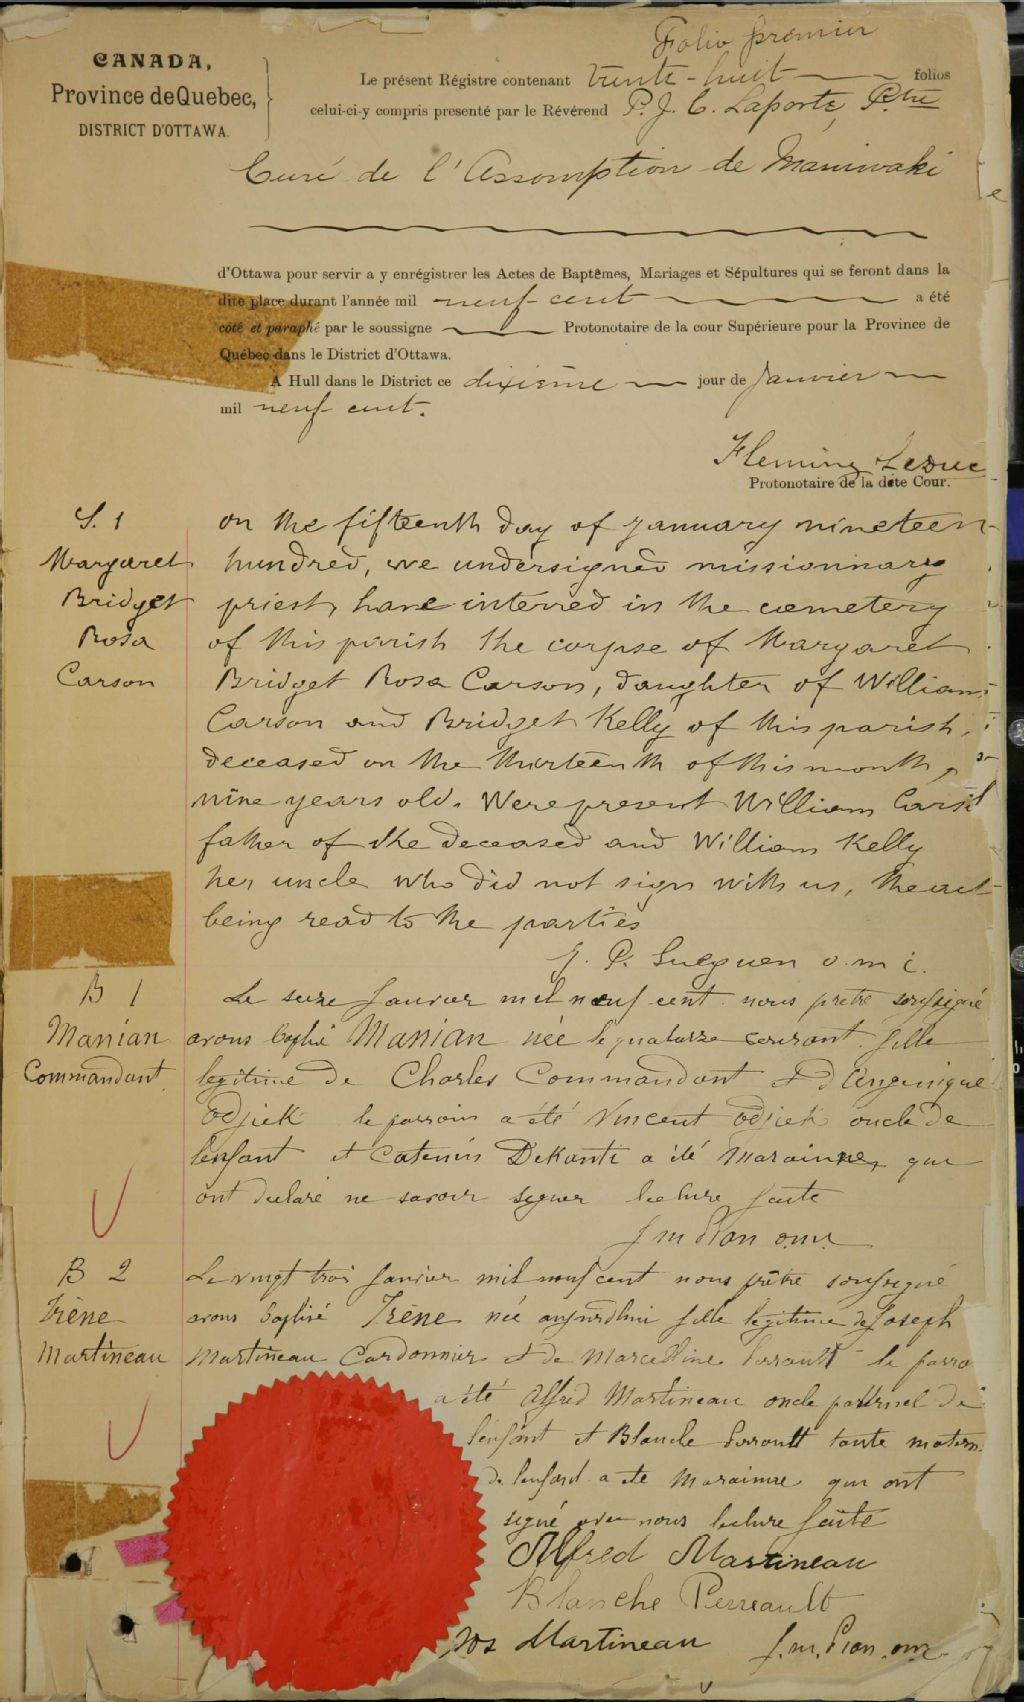 Folio premier
CANADA,
Province de Quebec,
DISTRICT D'OTTAWA.
Le présent Régistre contenant trente-huit folios
celui-ci-y compris presenté par le Révérend P. J. C. Laporte, Ptre
Curé de l'Assomption de Maniwaki
d'Ottawa pour servir a y enrégistrer les Actes de Baptêmes, Mariages et Sépultures qui se feront dans la
dite place durant l'année mil neuf cent a été
coté et paraphé par le soussigne Protonotaire de la cour Supérieure pour la Province de
Québec dans le District d'Ottawa.
A Hull dans le District ce dixième jour de Janvier
mil neuf cent.
Fleming Leduc
Protonotaire de la dite Cour.
S. 1
Margaret
Bridget
Rosa
Carson
on the fifteenth day of january nineteen
hundred, we undersigned missionnary
priest, have interred in the cœmetery
of this parish the corpse of Margaret
Bridget Rosa Carson, daughter of William
Carson and Bridget Kelly of this parish,
deceased on the thirteenth of this month,
nine years old. Were present William
father of the deceased and William Kelly
her uncle who did not sign with us, the act
being read to the parties
J. P. Gueguen o.m.i.
B 1
Manian
Commandant
Le seize Janvier mil neuf cent nous prêtre soussigné
avons baptisé Manian née le quatorze courant fille
legitime de Charles Commandant et d'Angenique
Odjick le parrain a été Vincent Odjick oncle de
lenfant et Catenin Dekanti a été Maraine, qui
ont declaré ne savoir signer lecture faite
J m Pian omi
B 2
Irène
Martineau
Le vingt trois Janvier mil neuf cent nous prêtre soussigné
avons baptisé Irène née aujourdhui fille legitime de Joseph
Martineau Cardonnier et de Marcelline Perrault le parra
a été Alfred Martineau oncle paternel de
lenfant et Blanche Perrault tante matern
de lenfant a été Maraine qui ont
signé avec nous lecture faite
Alfred Martineau
Blanche Perreault
Jos Martineau J. m. Pian omi